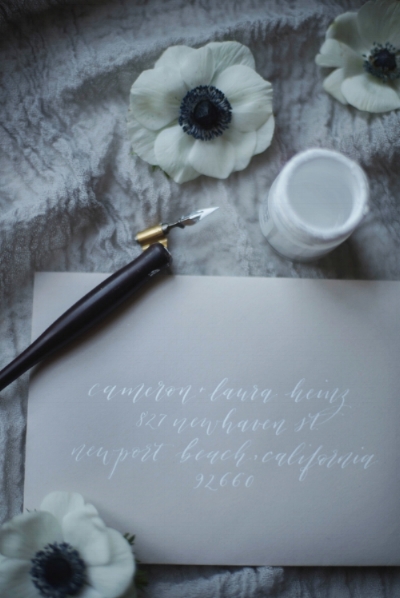 cameron + laura heinz
827 new haven st
newport beach, california
92660